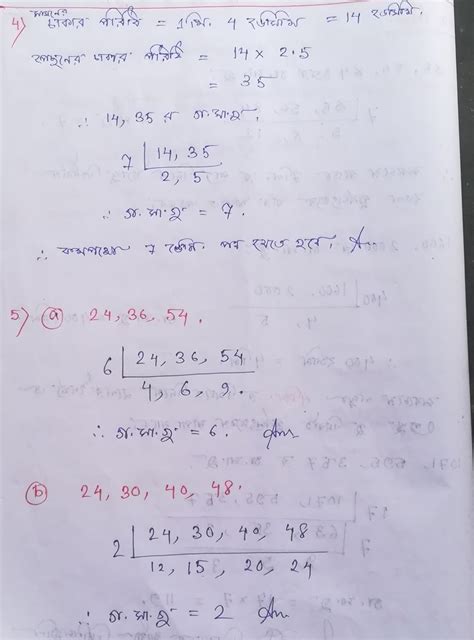 সামনের
4) চাকার পরিধি = 1 মি. 4 ডেসিমি = 14 ডেসিমি.
পেছনের চাকার পরিধি = 14 × 2.5
= 35
∴ 14, 35 র গ.সা.গু.
7 | 14, 35
2, 5
∴ গ.সা.গু = 7.
∴ কমপক্ষে 7 ডেসিমি. পথ যেতে হবে. Ans.
5) (a) 24, 36, 54.
6 | 24, 36, 54
4, 6, 9.
∴ গ.সা.গু = 6. Ans.
(b) 24, 30, 40, 48.
2 | 24, 30, 40, 48
12, 15, 20, 24
∴ গ.সা.গু = 2 Ans.